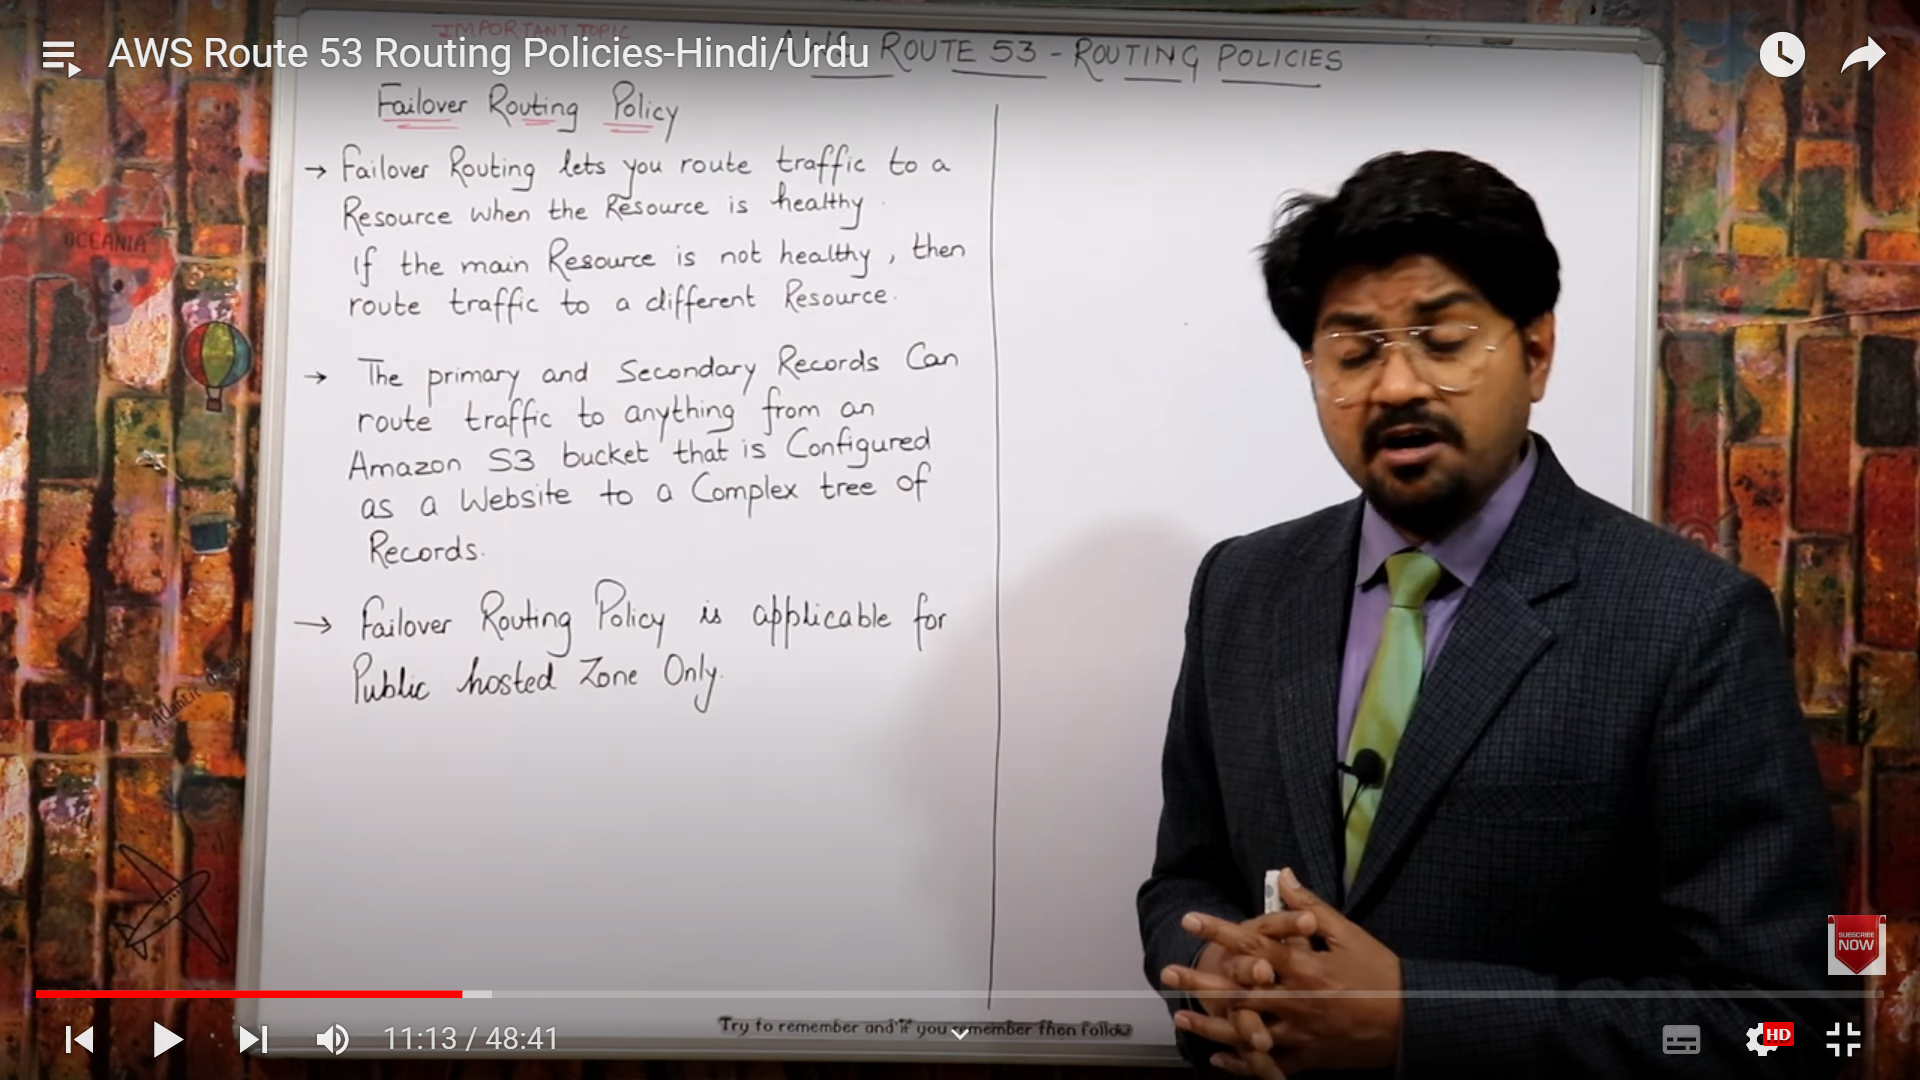 IMPORTANT TOPIC
AWS Route 53 Routing Policies-Hindi/Urdu
AWS ROUTE 53 - ROUTING POLICIES
Failover Routing Policy
→ Failover Routing lets you route traffic to a
Resource when the Resource is healthy.
if the main Resource is not healthy, then
route traffic to a different Resource.
→ The primary and Secondary Records Can
route traffic to anything from an
Amazon S3 bucket that is Configured
as a Website to a Complex tree of
Records.
→ Failover Routing Policy is applicable for
Public hosted Zone Only.
OCEANIA
SUBSCRIBE
NOW
Try to remember and if you remember then follow
11:13 / 48:41
HD